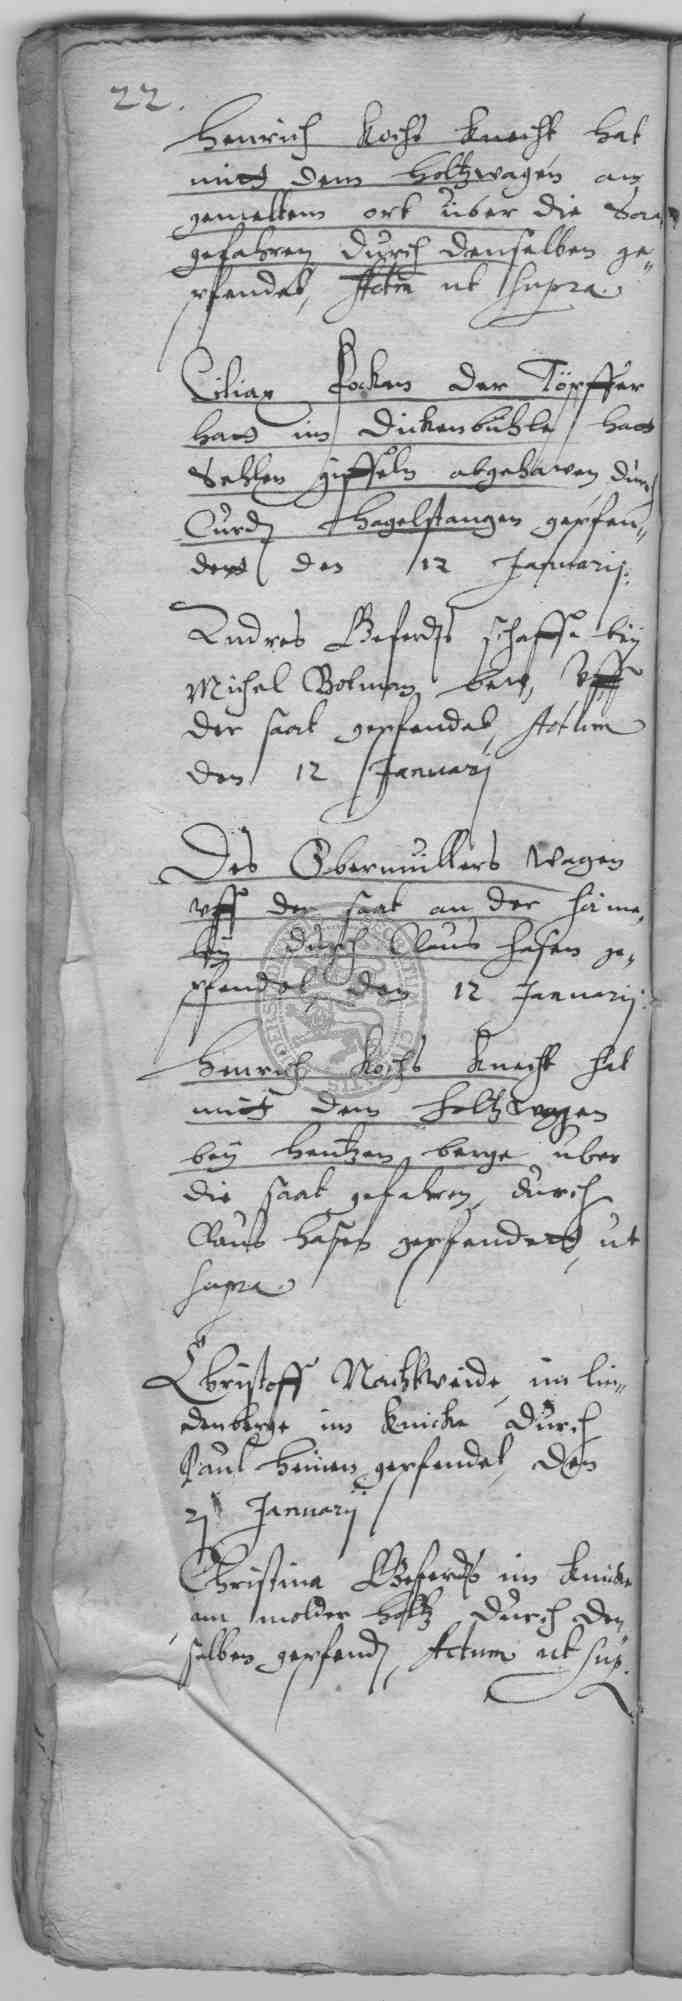 22.
Henrich Kochs Knecht hat
mitt dem holtzwagen an
gemeltem ort über die Saa„
gefahren durch denselben ge„
pfendet, Actum ut supra.
Cilias Focken der Töpffer
hatt im Dickenbühle hatt
Sehlen zippeln abgehawen, durch
Curdt Hagelstangen gepfen„
dett den 12 Januarij.
Andres Geferdts schaffe bey
Michel Bolman berg, Uff
der saat gepfendet, Actum
den 12 Januarj
Des Obermüllers Wagen
uff der saat an der
bey durch Claus Hasen ge„
pfendet, den 12 Januarij.
Henrich Kochs Knecht hat
mitt dem holtzwagen
bey Hentzen berge über
die saat gefahren, durch
Claus Hasen gepfendett, ut
supra.
Christoff Nachtweide, im lin„
denberge im Knicke durch
Paul Heinen gepfendet, den
Januarij
Christina Geferdts im Knicke
am molder holtz durch den
selben gepfendt, Actum ut sup.